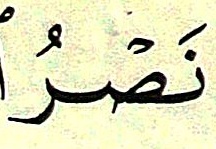 نَصْرُ